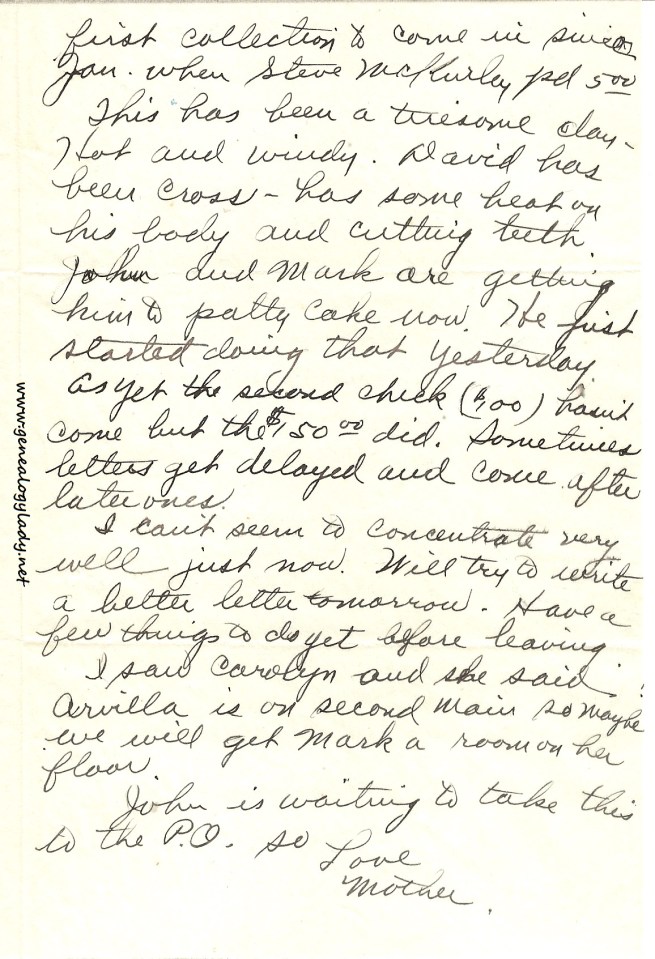 first collection to come in since
Jan. when Steve McKurley pd 5.00
This has been a tiresome day-
Hot and windy. David has
been cross - has some heat on
his body and cutting teeth
John and Mark are getting
him to patty cake now. He just
started doing that yesterday
As yet the second check ($100) hasn't
come but the $150 00 did. Sometimes
letters get delayed and come after
later ones.
I can't seem to concentrate very
well just now. Will try to write
a better letter tomorrow. Have a
few things to do yet before leaving
I saw Carolyn and she said
Arvilla is on second main so maybe
we will get Mark a room on her
floor
John is waiting to take this
to the P.O. so
Love
Mother.
www.genealogylady.net